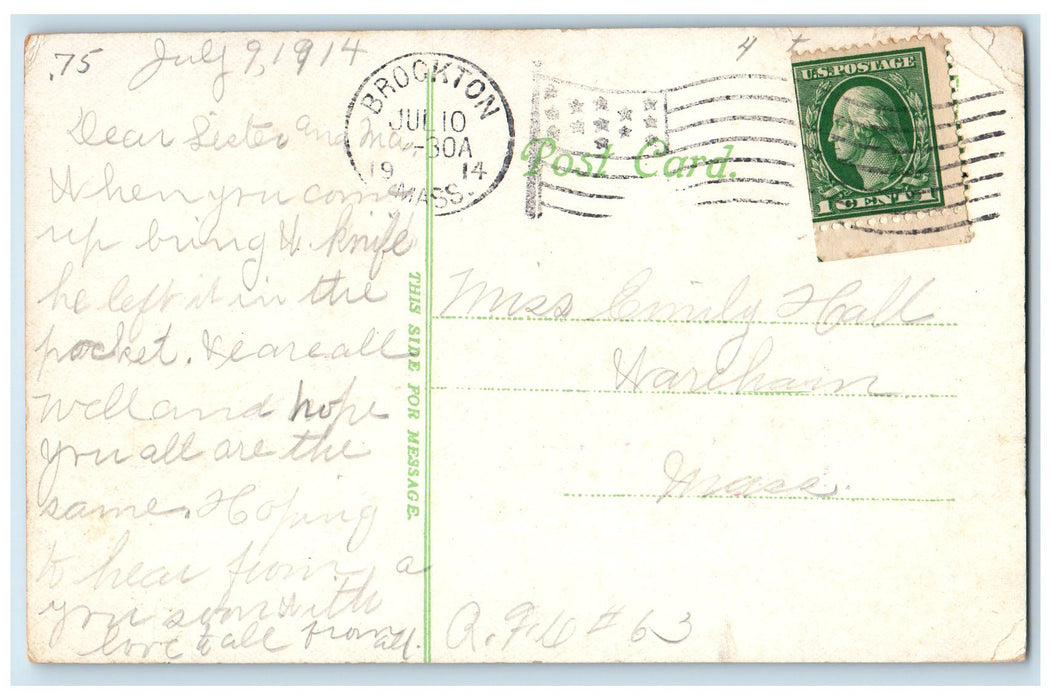 .75 July 9, 1914
Dear Sister and Ma,
When you come
up bring H. knife
he left it in the
pocket. We are all
well and hope
you all are the
same. Hoping
to hear from a
you soon with
love to all from all.
THIS SIDE FOR MESSAGE.
BROCKTON
JUL 10
-30A
19 14
MASS.
Post Card.
4
U.S. POSTAGE
1 CENT 1
Miss Emily Hall
Wareham
Mass.
#63